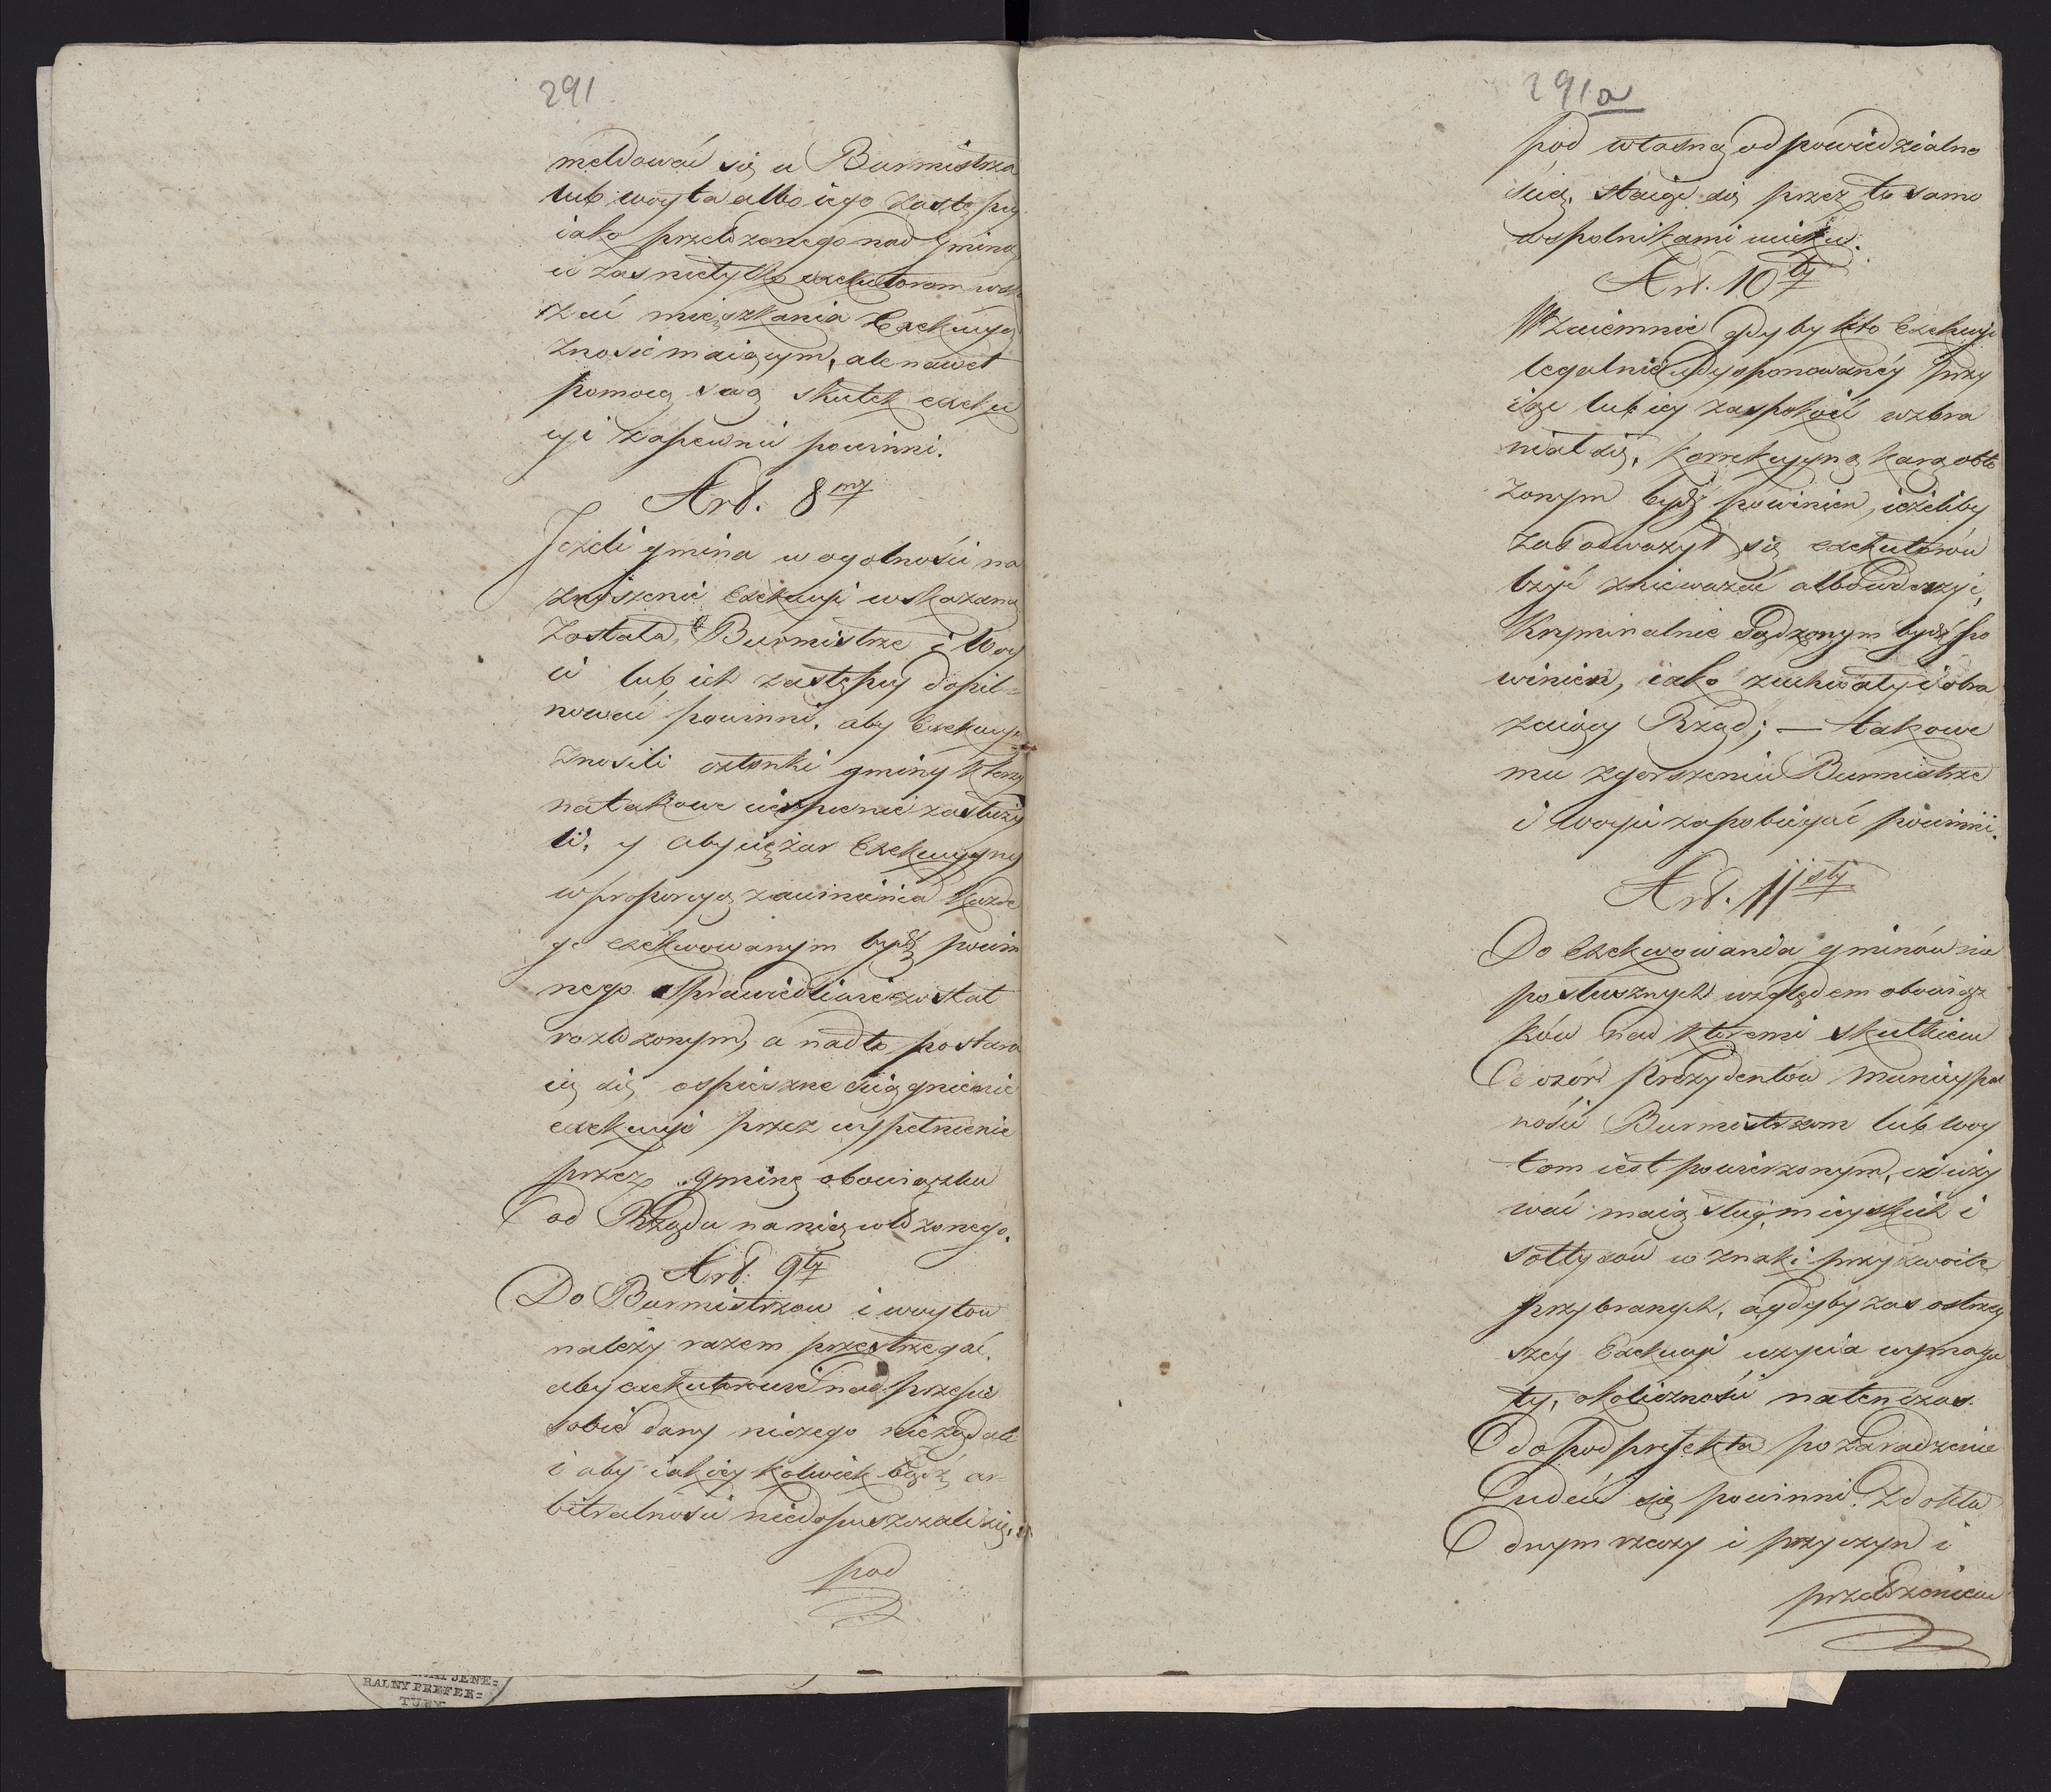 291
meldować się u Burmistrza
lub woyta albo iego Zastępcy
iako przełożonego nad Gminą
ci zas nietylko exekutorom wska
zać mieszkania Exekucyą
znosić maiącym, ale nawet
pomocą swą skutek exeku
cyi zapewnić powinni.
Art. 8my
Jeżeli gmina w ogolności na
znoszenie Exekucyi wskazaną
została, Burmistrze i Woy
ci lub ich zastępcy dopil=
nować powinni, aby Exekucyą
znosili członki gminy którzy
na takowe cierpienie zasłuży
li, y aby ciężar Exekucyyny
w proporcyą zawinienia każde
go exekwowanym bydź powin
nego sprawiedliwie został
rozłożonym, a nadto postara
ią się o spieszne ściągnienie
exekucyi przez wypełnienie
przez gminę obowiązku
od Rządu na nią włożonego.
Art. 9ty
Do Burmistrzow i woytow
należy razem przestrzegać,
aby exekutorowie nad przepis
sobie dany niczego nieżądali
i aby iakieykolwiek bądź ar=
bitralności niedopuszczali się,
pod
JENE=
RALNY PREFEK=
TURY
291a
pod własną odpowiedzialno
ścią, staiąc się przez to samo
wspolnikami ucisku.
Art. 10ty
Wzaiemnie gdyby kto Exekucyi
legalnie dysponowanéy przy
iąć lub iey zaspokoić wzbra
niał się, korrekcyyną karą obło
żonym bydź powinien, ieżeliby
zas odważył się exekutorów
lżyć znieważać albo uderzyć,
Kryminalnie sądzonym bydź po
winien, iako zuchwały i obra
żaiący Rząd; — takowe
mu zgorszeniu Burmistrze
i woyci zapobiegać powinni.
Art. 11sty
Do Exekwowania gminów nie
posłusznych względem obowiąz
ków nad któremi skutkiem
dozór Prezydentów Municypal
ności Burmistrzom lub woy
tom iest powierzonym, ci uży
wać maią sług mieyskich i
sołtysów w znaki przyzwoite
przybranych, a gdyby zas ostrzey
széy Exekucyi użycia wymaga
ły, okoliczności natenczas
do podprefekta po zaradzenie
udać się powinni. Z dokła
dnym rzeczy i przyczyn i
przełożeniem